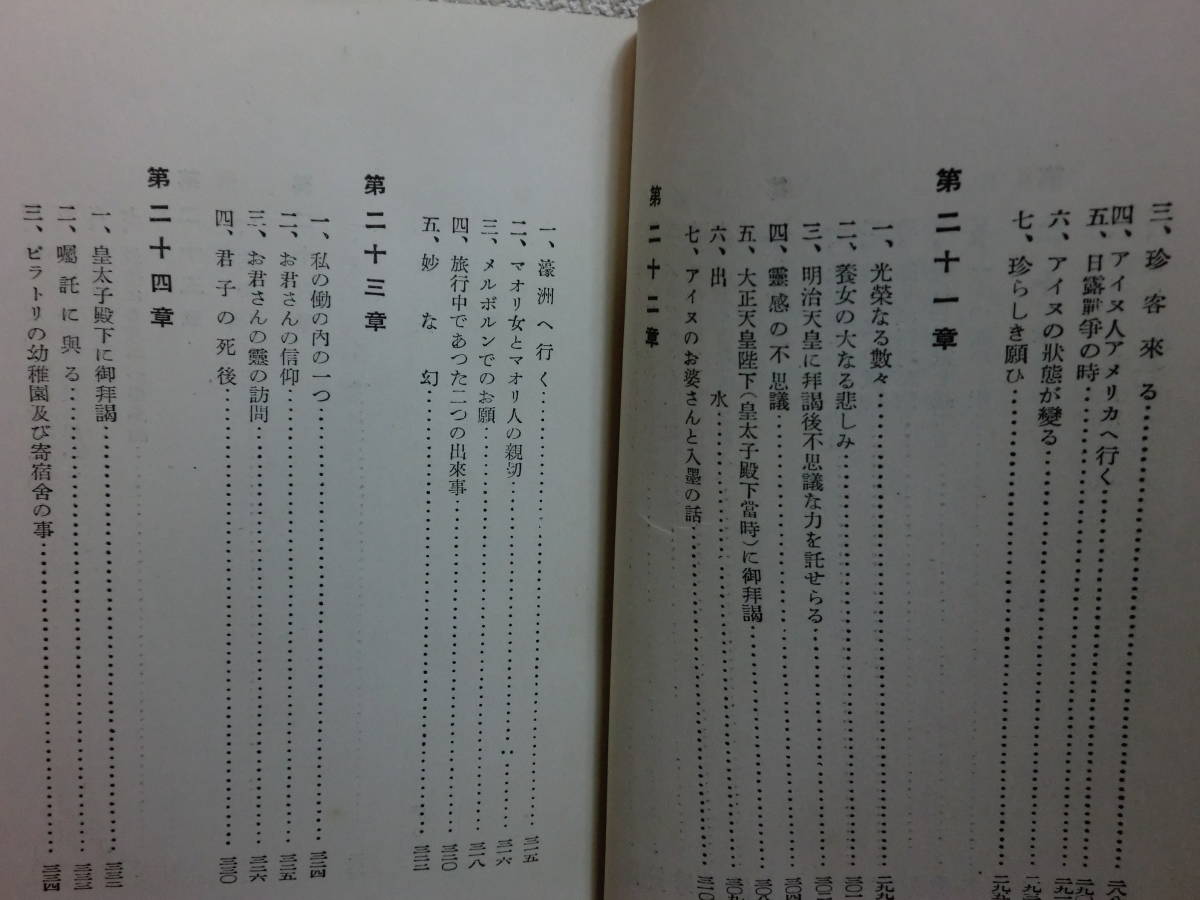 三、珍客來る
四、アイヌ人アメリカへ行く
五、日露戰爭の時
六、アイヌの狀態が變る
七、珍らしき願ひ
第二十一章
一、光榮なる數々
二、養女の大なる悲しみ
三、明治天皇に拜謁後不思議な力を託せらる
四、靈感の不思議
五、大正天皇陛下(皇太子殿下當時)に御拜謁
六、出水
七、アイヌのお婆さんと入墨の話
第二十二章
一、濠洲へ行く……三一五
二、マオリ女とマオリ人の親切……三一六
三、メルボルンでのお願……三一八
四、旅行中であつた二つの出來事……三二〇
五、妙な幻……三二二
第二十三章
一、私の働の內の一つ……三二四
二、お君さんの信仰……三二五
三、お君さんの靈の訪問……三二六
四、君子の死後……三三〇
第二十四章
一、皇太子殿下に御拜謁……三三二
二、囑託に與る……三三三
三、ピラトリの幼稚園及び寄宿舍の事……三三四